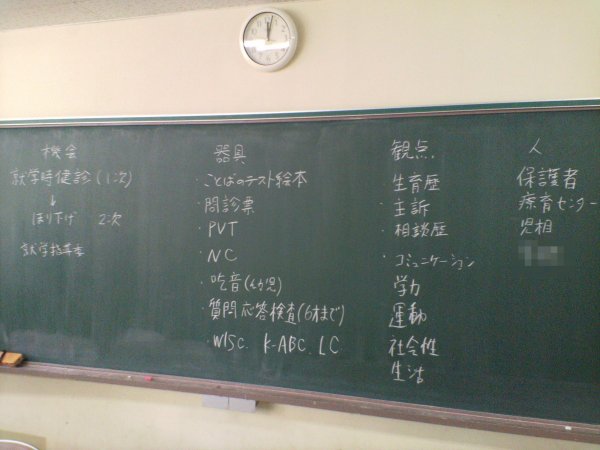 機会
就学時健診(1次)
↓
ほり下げ 2次
就学指導
器具
・ことばのテスト絵本
・問診票
・PVT
・NC
・吃音(幼児)
・質問応答検査(6才まで)
・WISC. K-ABC. LC
観点
・生育歴
・主訴
・相談歴
・コミュニケーション
学力
運動
社会性
生活
人
保護者
療育センター
児相